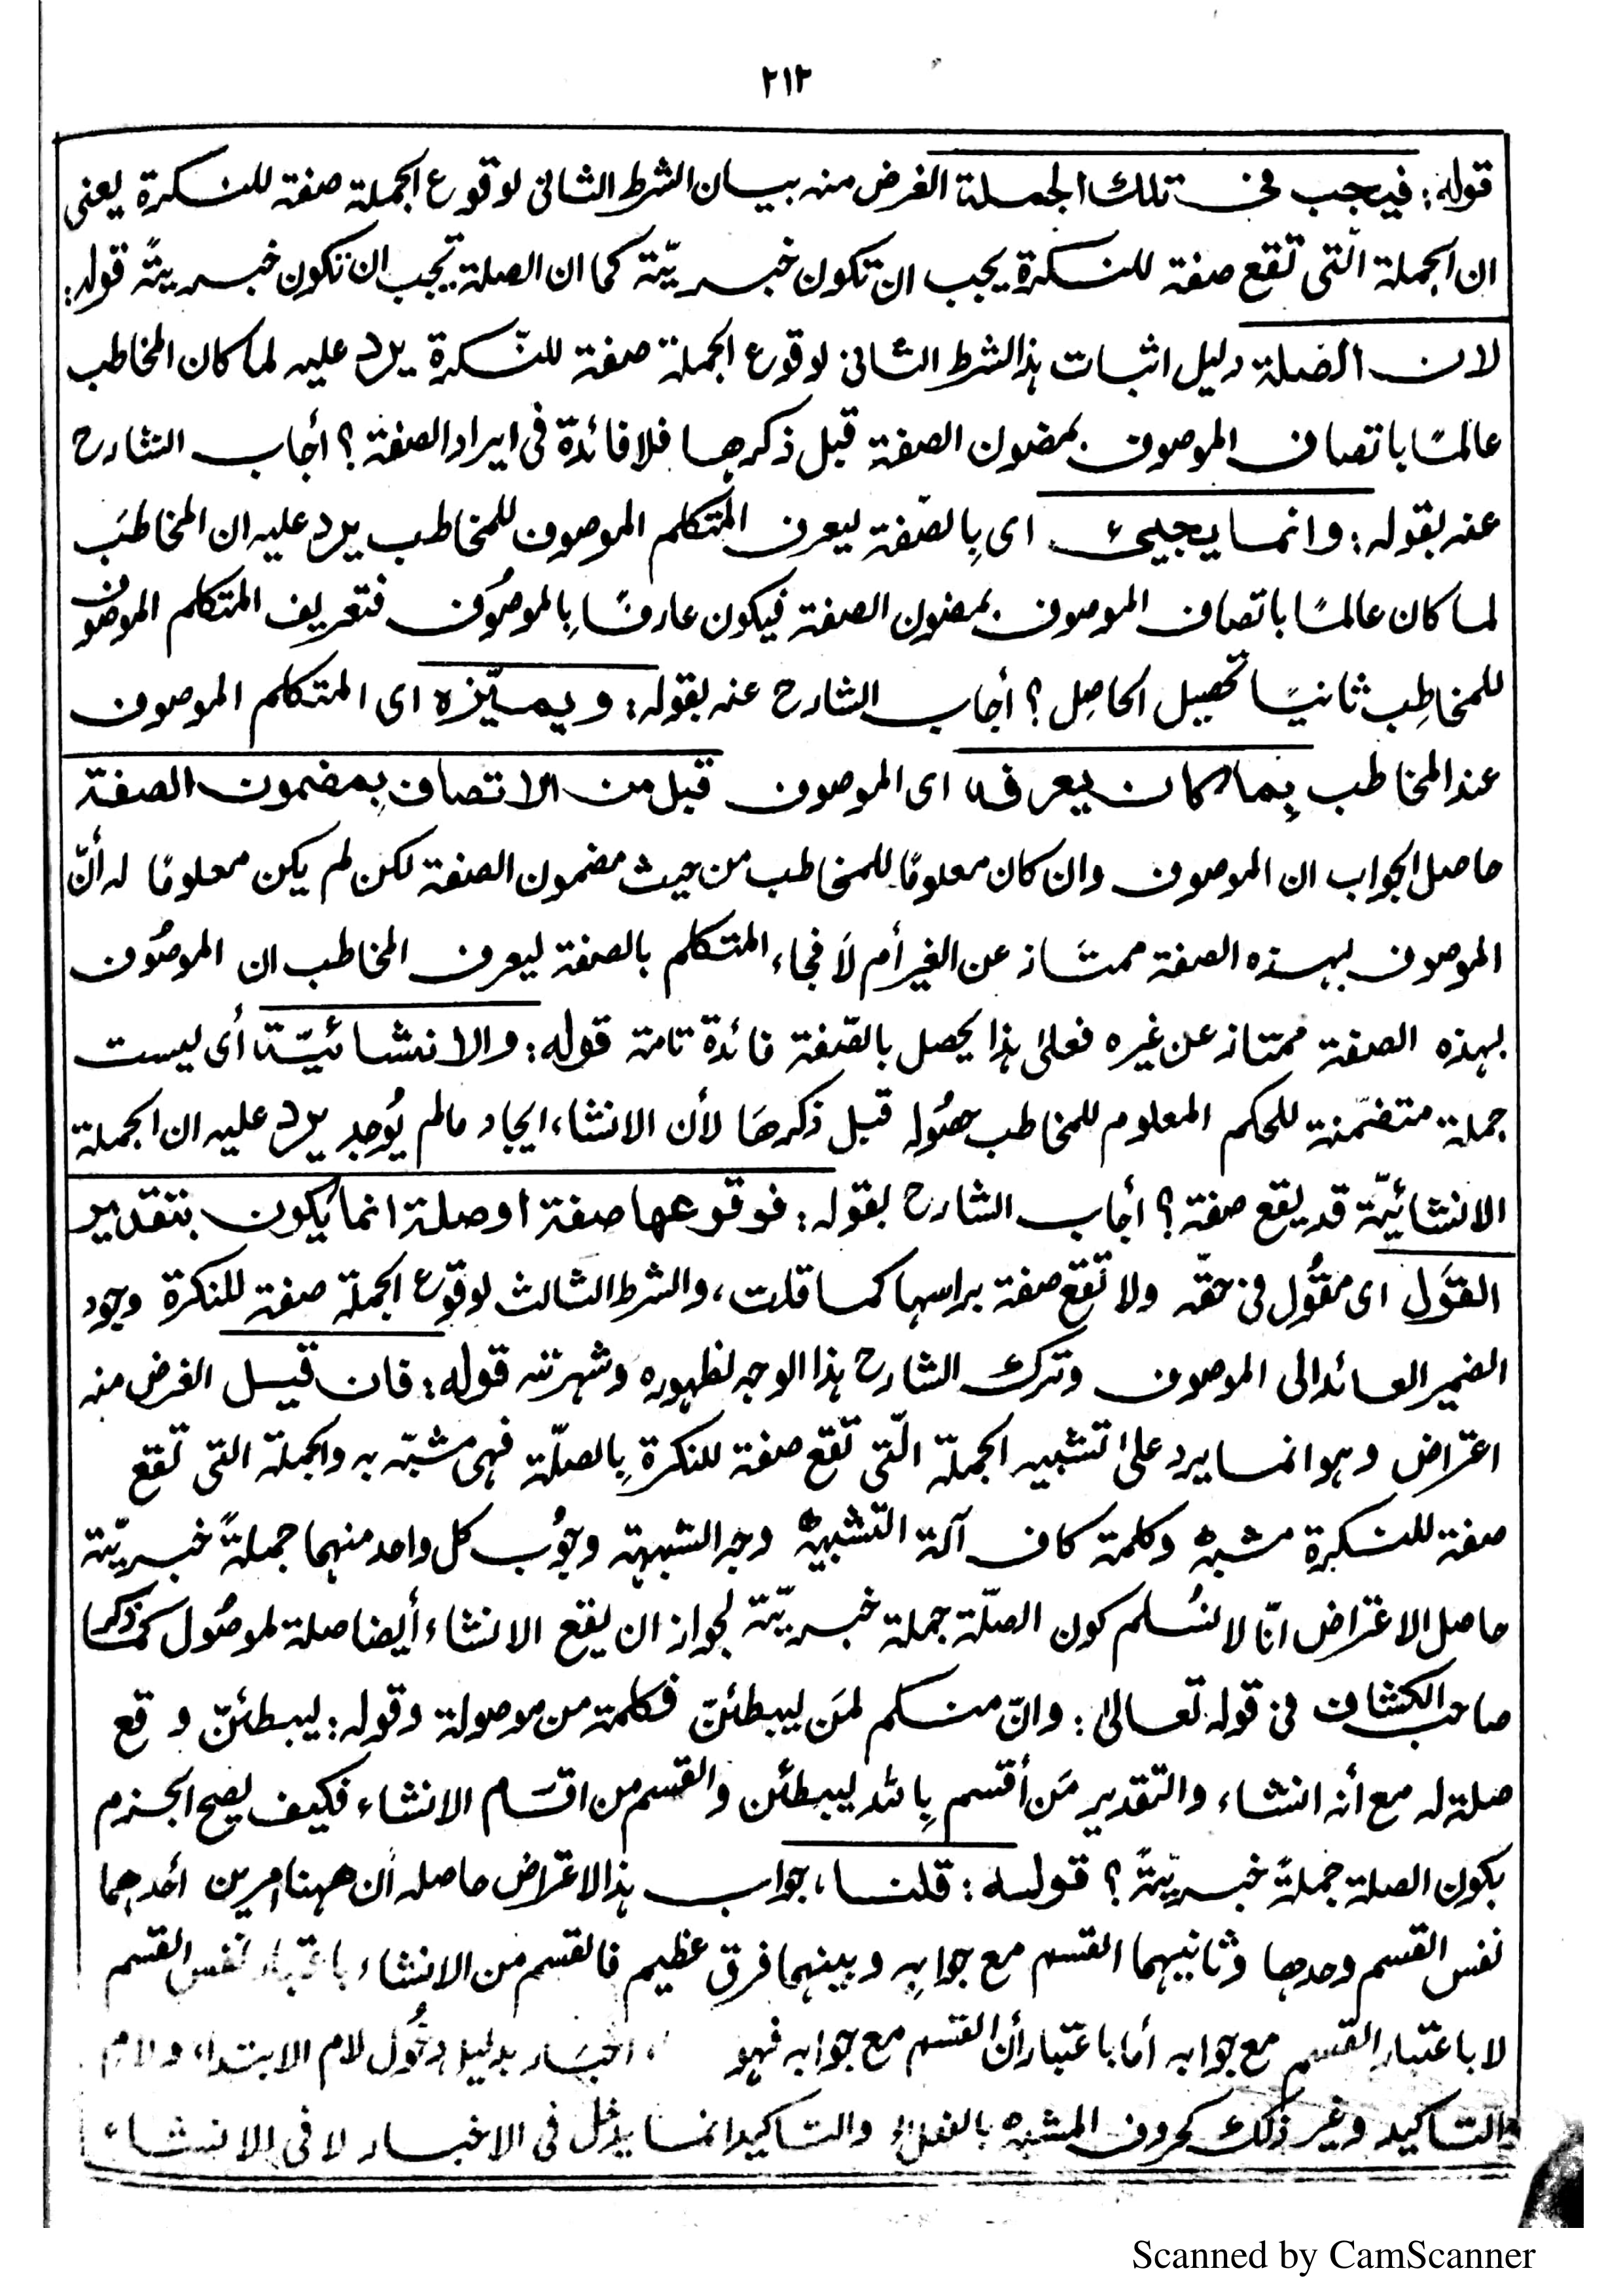 ٢١٢
قوله: فيجب فى تلك الجملة الغرض منه بيان الشرط الثانى لوقوع الجملة صفة للنكرة يعنى
ان الجملة الّتى تقع صفة للنكرة يجب ان تكون خبريّة كما ان الصلة تجب ان تكون خبريةً قوله:
لان الصلة دليل اثبات هذا الشرط الثانى لوقوع الجملة صفة للنّكرة يرد عليه لما كان المخاطب
عالمًا باتصاف الموصوف بمضمون الصفة قبل ذكرها فلا فائدة فى ايراد الصفة؟ أجاب الشارح
عنه بقوله: وانما يجيئ اى بِالصّفة ليعرف المتكلم الموصوف للمخاطب يرد عليه ان المخاطبَ
لما كان عالمًا باتصاف الموصوف بمضمون الصفة فيكون عارفًا بِالموصُوف فتعريف المتكلم الموصوف
للمخاطِب ثانيًا تحصيل الحاصِل؟ أجاب الشارح عنه بقوله: ويميّزه اى المتكلم الموصوف
عند المخاطب بِما كان يعرفه اى الموصوف قبل من الاتصاف بِمضمون الصفة
حاصل الجواب ان الموصوف وان كان معلومًا للمخاطب من حيث مضمون الصفة لكن لم يكن معلومًا له أنّ
الموصوف بهذه الصفة ممتَاز عن الغير أم لَا فجاء المتكلم بالصفة ليعرف المخاطب ان الموصُوف
بهذه الصفة ممتاز عن غيره فعلىٰ هذا يحصل بالصّفة فائدة تامة قوله: والانشائيّة أى ليست
جملة متضمّنة للحكم المعلوم للمخاطب حصُوله قبل ذكرهَا لأن الانشاء ايجاد مالم يُوجد يرد عليه ان الجملة
الانشائيّة قد يقع صفة؟ أجاب الشارح بقوله: فوقوعها صفة اوصلة انما يكون بتقدير
القوَل اى مقُول فى حقّه ولا تقع صفة براسها كما قلت، والشرط الثالث لوقوع الجملة صفة للنكرة وجود
الضمير العائد الى الموصوف وترك الشارح هذا الوجه لظهوره وشهرته قوله: فان قيل الغرض منه
اعتراض وهو انما يرد علىٰ تشبيه الجملة الّتى تقع صفة للنكرة بِالصلّة فهى مشبّه به والجملة التى تقع
صفة للنكرة مشبهٌ وكلمة كاف آلة التشبيهْ وجه الشبهة وجوُب كل واحد منهما جملةً خبريّة
حاصل الاعتراض انّا لا نسُلم كون الصلّة جملة خبريّة لجواز ان يقع الانشاء أيضا صلة لموصُول كما ذكر
صاحب الكشاف فى قوله تعالىٰ: وانّ منكم لمَن ليبطئنّ فكلمة من موصولة وقوله: ليبطئنّ وقع
صلة له مع أنه انشاء والتقدير مَن أقسم بِالله ليبطئن والقسم من اقسَام الانشاء فكيف يصح الجزم
بكون الصلة جملةً خبريّةً؟ قوله: قلنا، جواب هذا الاعتراض حاصله أن ههنا امرين أحدهما
نفس القسم وحدها وثانيهما القسم مع جوابهِ وبينهما فرق عظيم فالقسم من الانشاء باعتبار نفس القسم
لا باعتبار القسم مع جوابه أما باعتبار أن القسم مع جوابه فهو اخبَار بدليل دخُول لام الابتداء ولام
والتاكيد وغير ذلك كحروف المشبهْ بالفعل والتاكيد انما يدخل فى الاخبار لا فى الانشاء
Scanned by CamScanner